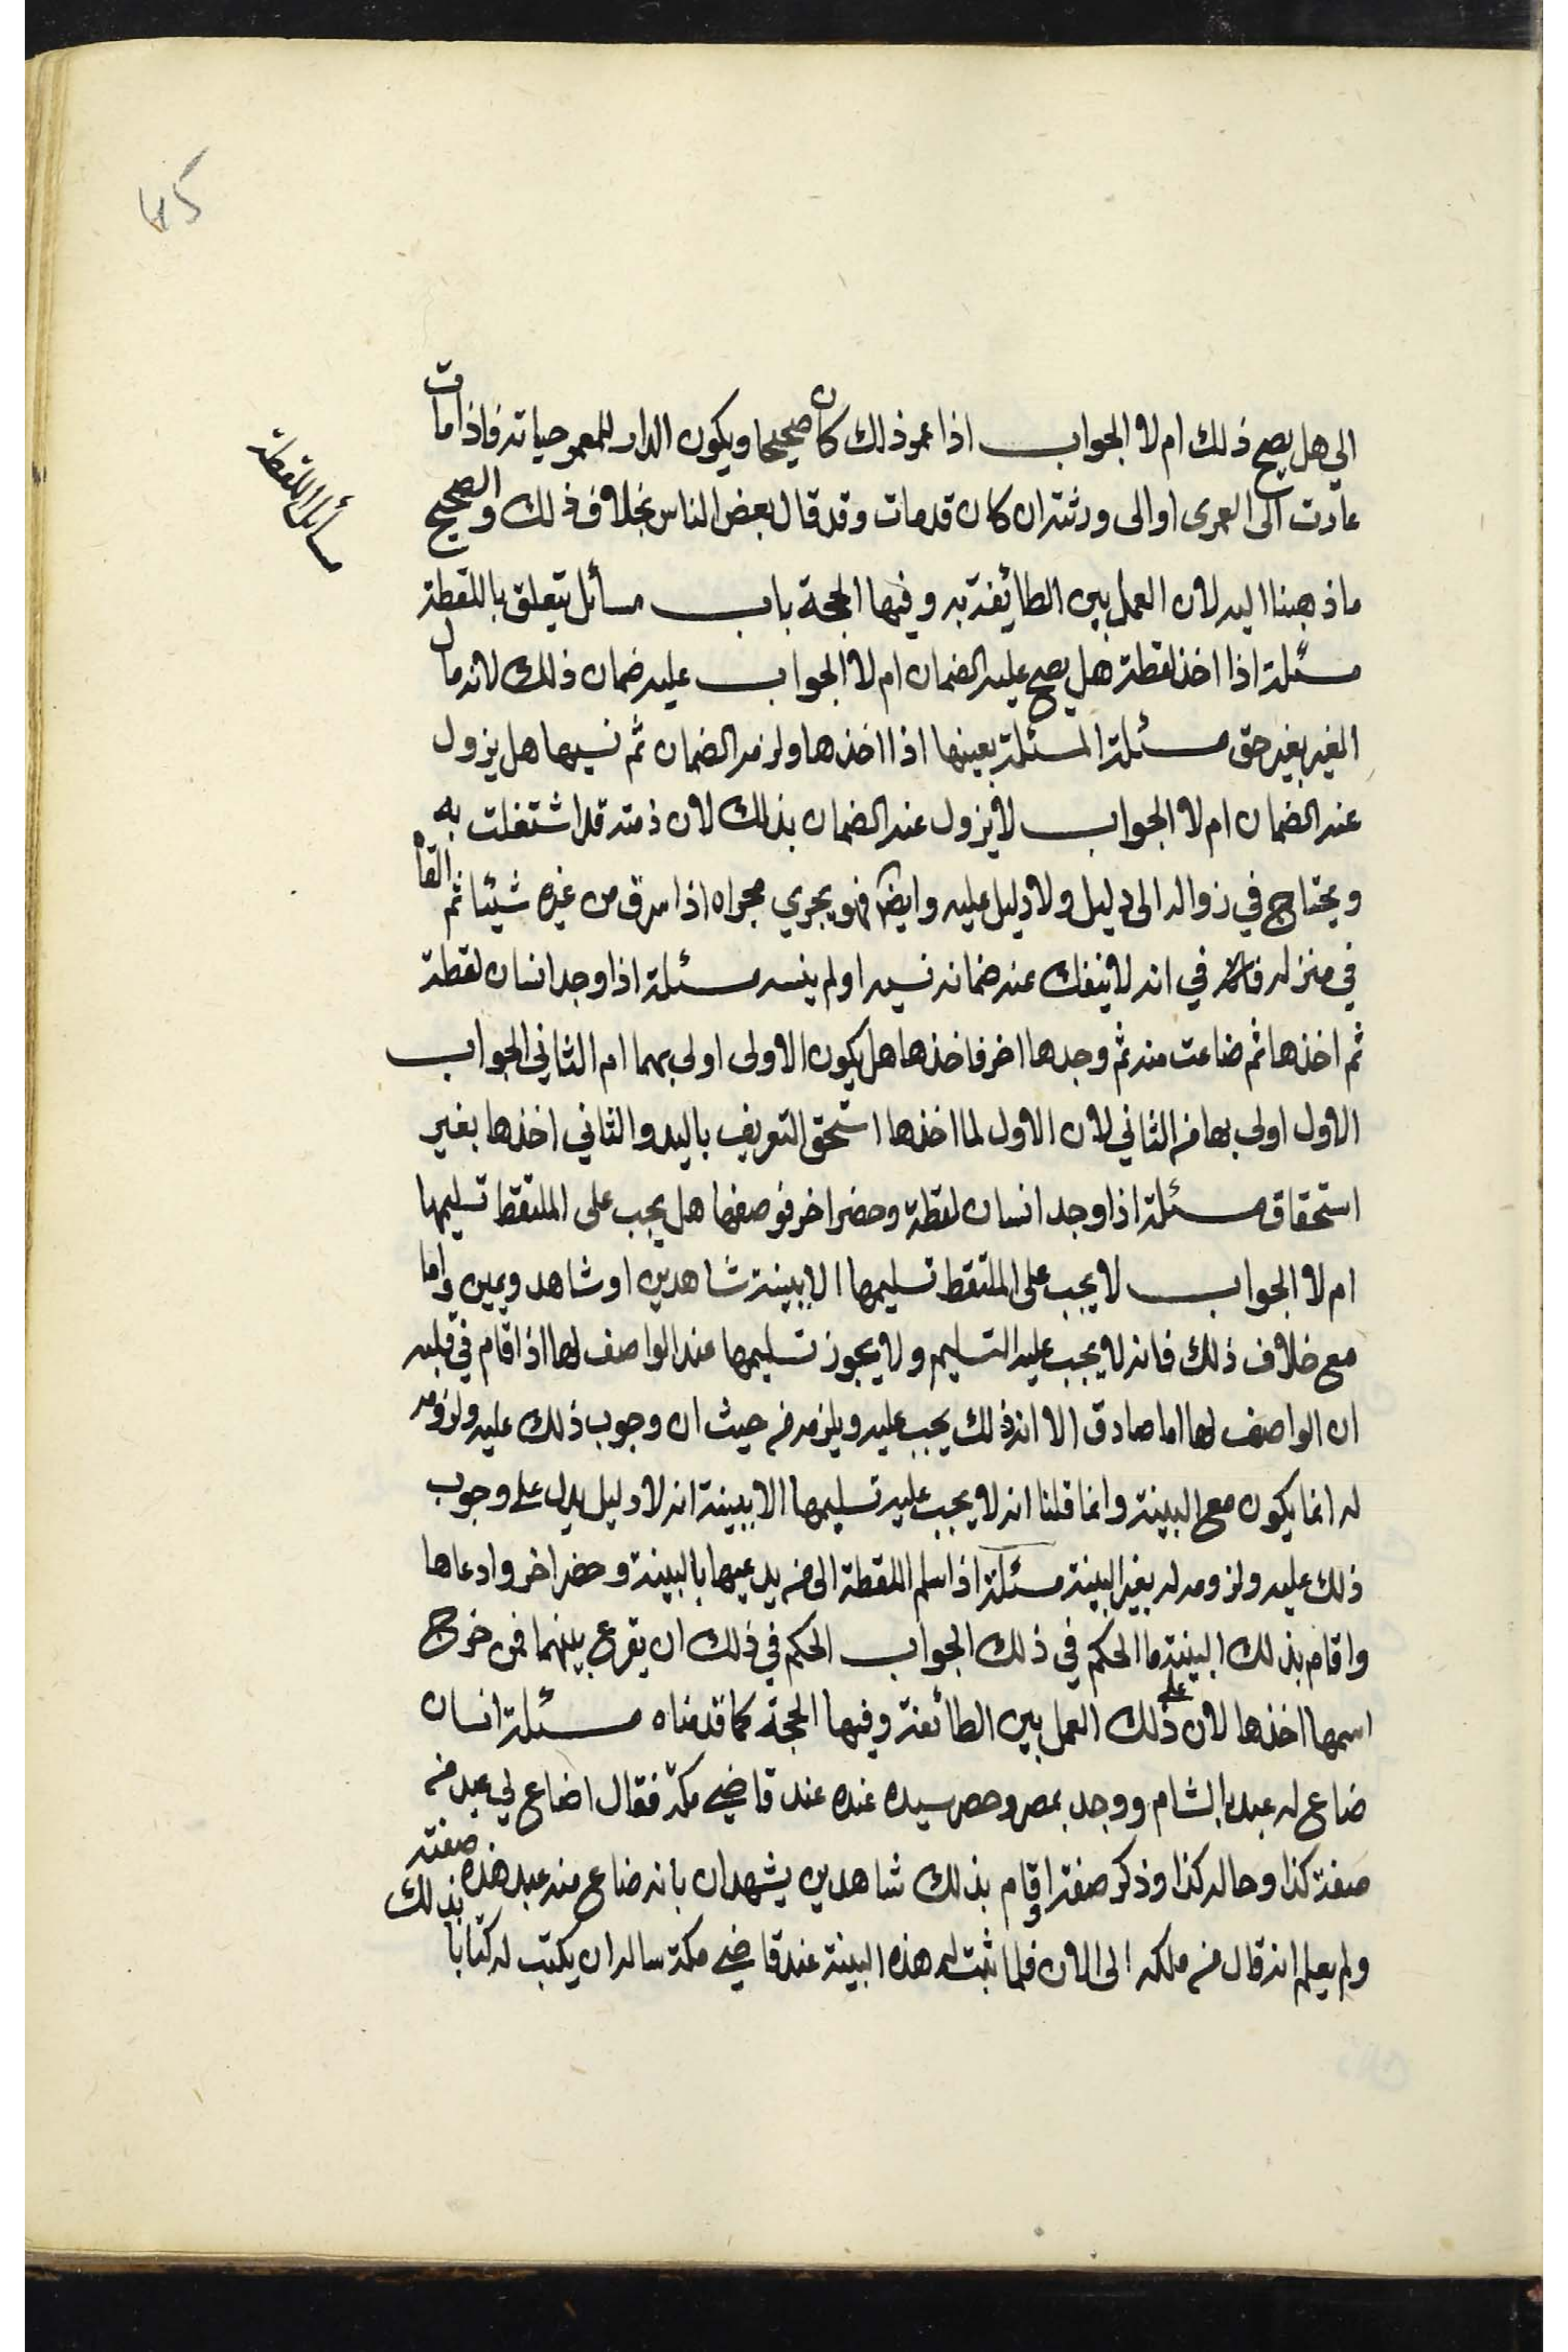 45
مسائل اللقطة
الي هل يصح ذلك ام لا الجواب اذا عمر ذلك كان صحيحا ويكون الدار للمعمر حياته فاذا مات
عادت الى العمرى او الى ورثته ان كان قد مات وقد قال بعض الناس بخلاف ذلك والصحيح
ما ذهبنا اليه لان العمل بين الطائفة به وفيها الحجة باب مسائل تتعلق باللقطة
مسئلة اذا اخذ لقطة هل يصح عليه الضمان ام لا الجواب عليه ضمان ذلك لانه مال
الغير بغير حق مسئلة المسئلة بعينها اذا اخذها ولزمه الضمان ثم نسيها هل يزول
عنه الضمان ام لا الجواب لا يزول عنه الضمان بذلك لان ذمته قد اشتغلت به
ويحتاج في زواله الى دليل ولا دليل عليه وايضا فهو يجري مجراه اذا سرق من غيره شيئا ثم القاه
في منزله في انه لا ينفك عنه ضمانه نسيه او لم ينسه مسئلة اذا وجد انسان لقطة
ثم اخذها ثم ضاعت منه ثم وجدها اخر فاخذها هل يكون الاولى اولى بهما ام الثاني الجواب
الاول اولى بها من الثاني لان الاول لما اخذها استحق التعريف باليد والثاني اخذها بغير
استحقاق مسئلة اذا وجد انسان لقطة وحضر اخر فوصفها هل يجب على الملتقط تسليمها
ام لا الجواب لا يجب على الملتقط تسليمها الا ببينة شاهدين او شاهد ويمين واما
مع خلاف ذلك فانه لا يجب عليه التسليم ولا يجوز تسليمها عند الواصف لها اذا اقام في قلبه
ان الواصف لها اما صادق الا ان ذلك يجب عليه ويلزمه من حيث ان وجوب ذلك عليه ولزومه
له انما يكون مع البينة وانما قلنا انه لا يجب عليه تسليمها الا ببينة انه لا دليل يدل على وجوب
ذلك عليه ولزومه له بغير البينة مسئلة اذا سلم اللقطة الى من يدعيها بالبينة وحضر اخر وادعاها
واقام بذلك البينة ما الحكم في ذلك الجواب الحكم في ذلك ان يقرع بينهما فمن خرج
اسمها اخذها لان على ذلك العمل بين الطائفة وفيها الحجة كما قدمناه مسئلة انسان
ضاع له عبد بالشام ووجد بمصر وحضر سيده عنده عند قاضي مكة فقال اضاع لي عبد من
صفته كذا وحاله كذا وذكر صفته واقام بذلك شاهدين يشهدان بانه ضاع منه عبد هذه صفته
ولم يعلم انه قال من ملكه الى الان فلما ثبت له هذه البينة عند قاضي مكة ساله ان يكتب له كتابا بذلك